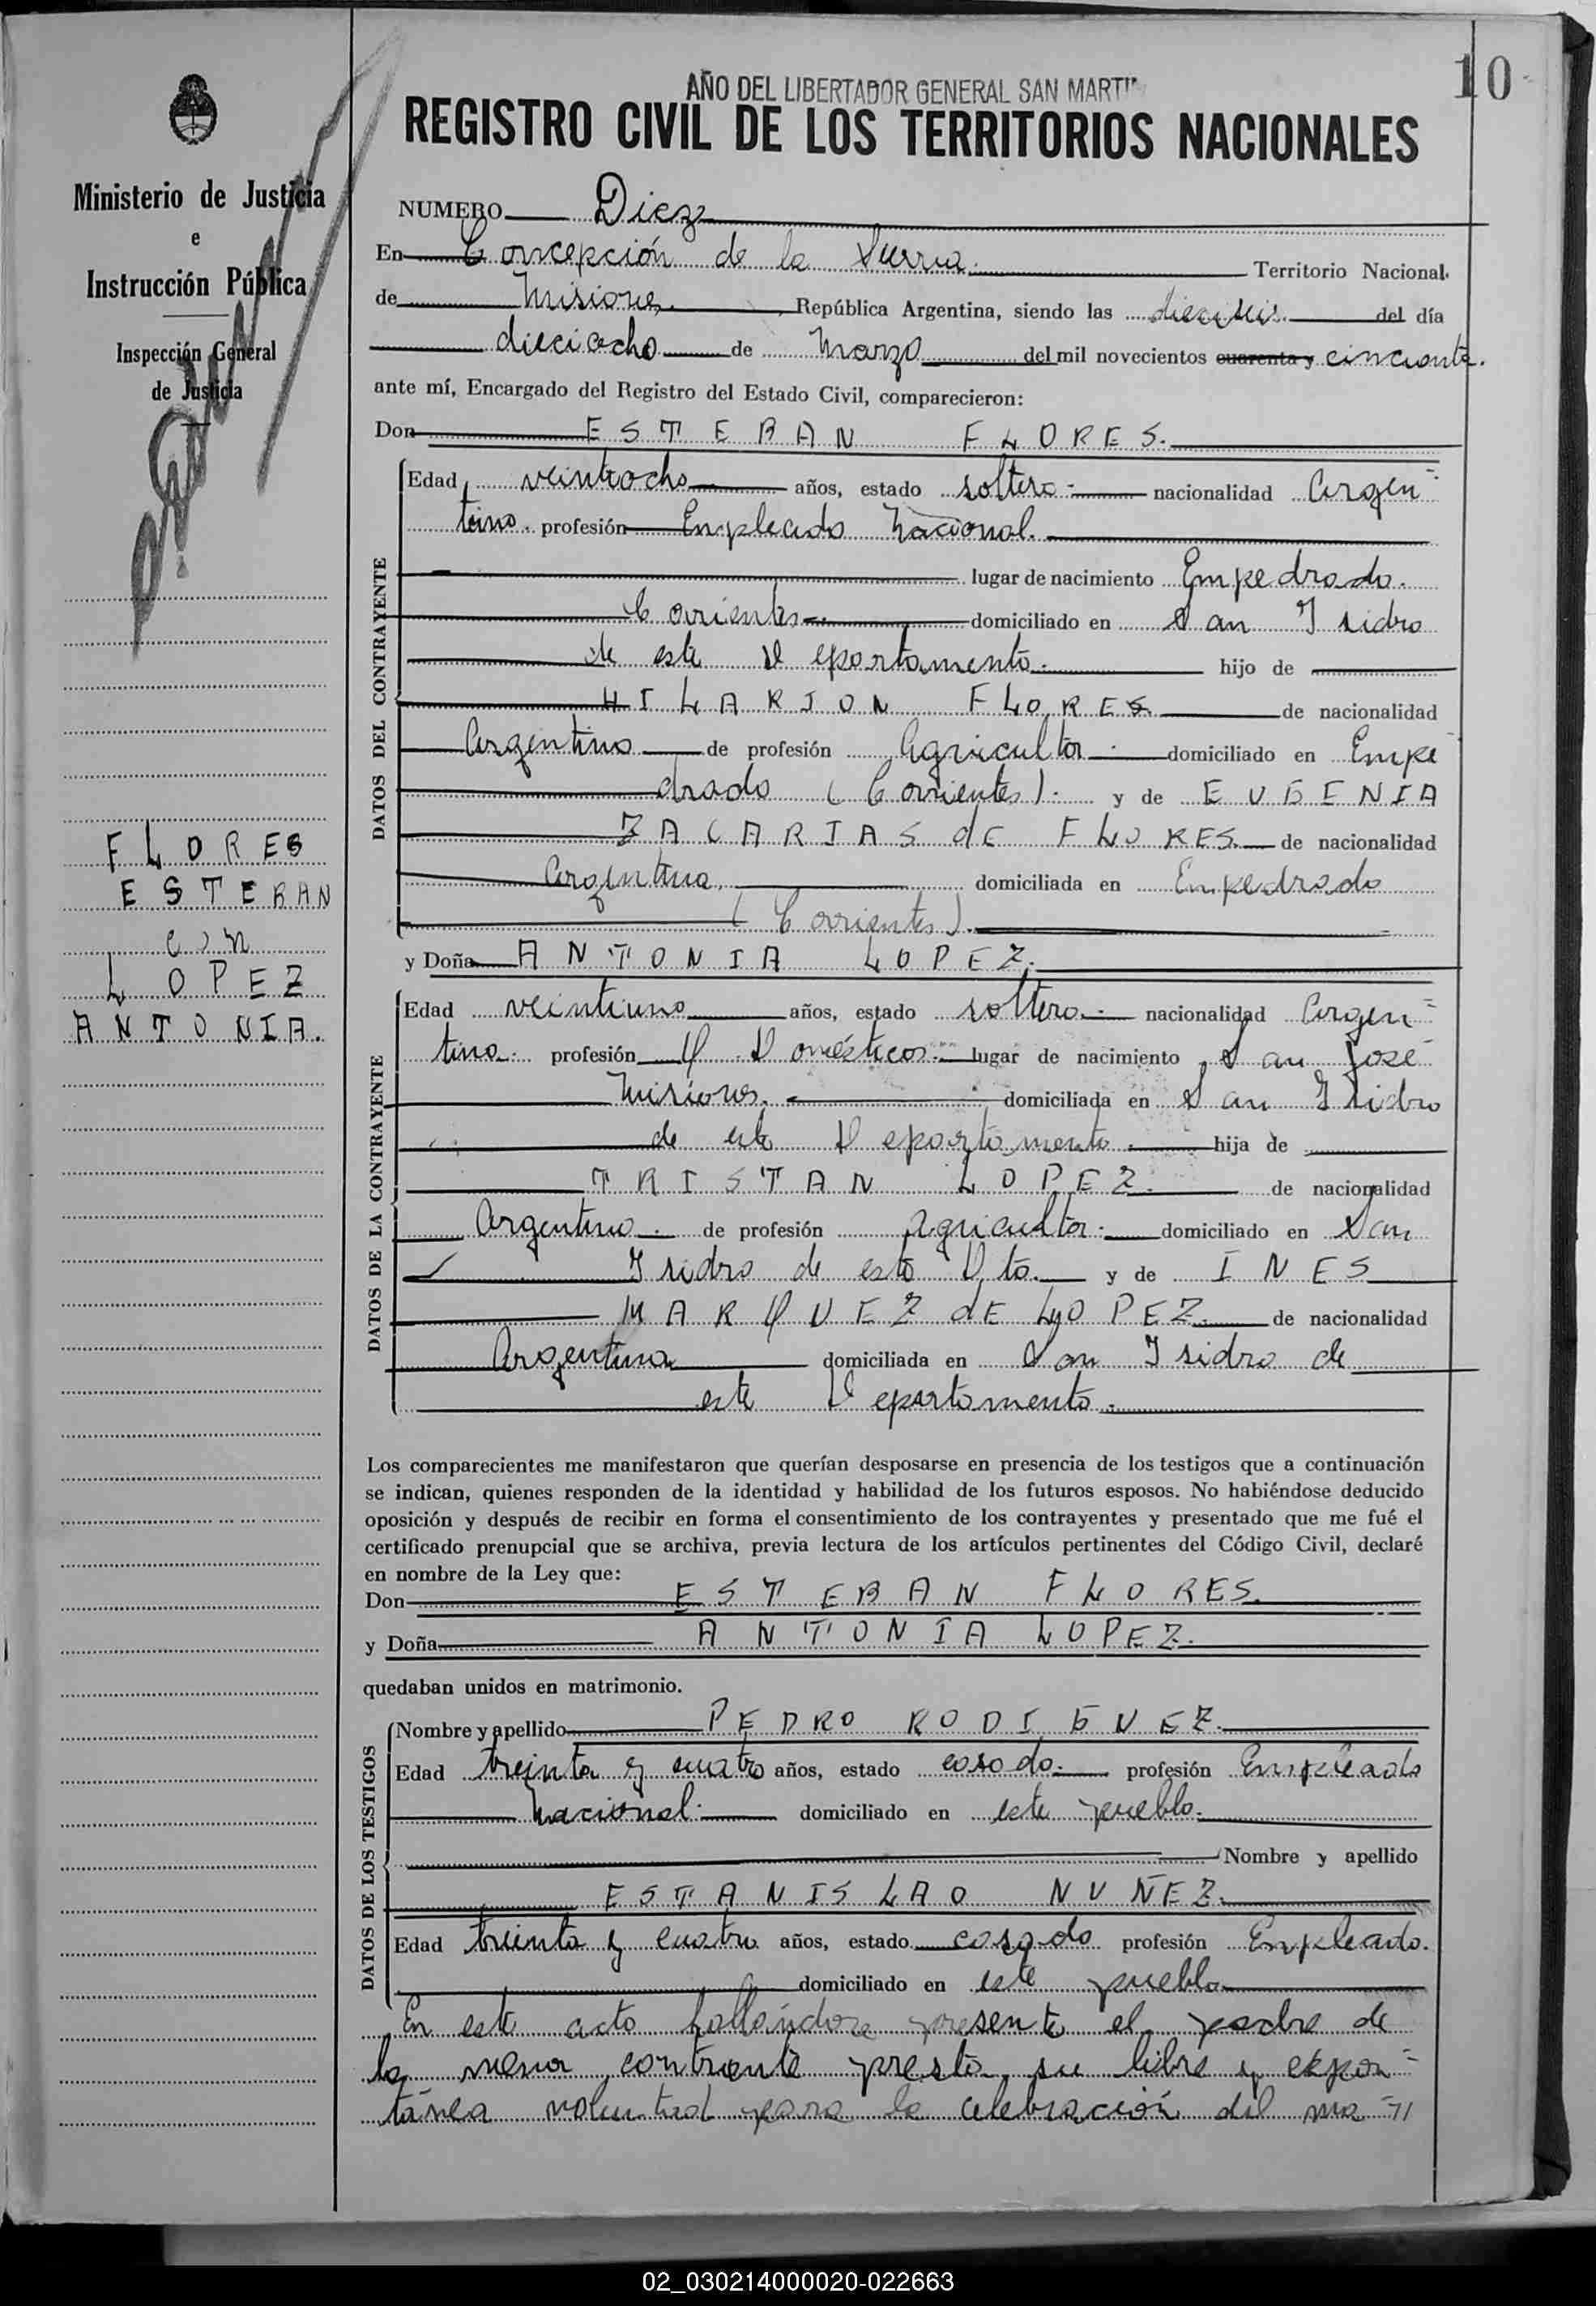 10
AÑO DEL LIBERTADOR GENERAL SAN MARTI
REGISTRO CIVIL DE LOS TERRITORIOS NACIONALES
Ministerio de Justicia
e
Instrucción Pública
Inspección General
de Justicia
FLORES
ESTEBAN
con
LOPEZ
ANTONIA.
NUMERO Diez
En Concepción de la Sierra. Territorio Nacional
de Misiones. República Argentina, siendo las dieciseis. del día
dieciocho de Marzo del mil novecientos cuarenta y cincuenta.
ante mí, Encargado del Registro del Estado Civil, comparecieron:
Don ESTEBAN FLORES.
DATOS DEL CONTRAYENTE
Edad veintiocho años, estado soltero.- nacionalidad Argen=
tino. profesión Empleado Nacional.
lugar de nacimiento Empedrado.
Corrientes. domiciliado en San Isidro
de este Departamento. hijo de
HILARION FLORES de nacionalidad
Argentino de profesión Agricultor. domiciliado en Empe
drado (Corrientes). y de EUGENIA
ZACARIAS dE FLORES. de nacionalidad
Argentina. domiciliada en Empedrado
(Corrientes).
y Doña ANTONIA LOPEZ.
DATOS DE LA CONTRAYENTE
Edad veintiuno años, estado soltera.- nacionalidad Argen=
tina. profesión Q. Domésticos. lugar de nacimiento San José
Misiones. domiciliada en San Isidro
de este Departamento. hija de
TRISTAN LOPEZ. de nacionalidad
Argentino. de profesión Agricultor. domiciliado en San
Isidro de este Dto. y de INES
MARQUEZ dE LOPEZ. de nacionalidad
Argentina domiciliada en San Isidro de
este Departamento.
Los comparecientes me manifestaron que querían desposarse en presencia de los testigos que a continuación
se indican, quienes responden de la identidad y habilidad de los futuros esposos. No habiéndose deducido
oposición y después de recibir en forma el consentimiento de los contrayentes y presentado que me fué el
certificado prenupcial que se archiva, previa lectura de los artículos pertinentes del Código Civil, declaré
en nombre de la Ley que:
Don ESTEBAN FLORES.
y Doña ANTONIA LOPEZ.
quedaban unidos en matrimonio.
DATOS DE LOS TESTIGOS
Nombre y apellido PEDRO RODIGUEZ.
Edad treinta y cuatro años, estado casado. profesión Empleado
Nacional. domiciliado en este pueblo.
Nombre y apellido
ESTANISLAO NUÑEZ.
Edad treinta y cuatro años, estado casado profesión Empleado.
domiciliado en este pueblo
En este acto hallándose presente el padre de
la menor contrante presta su libre y espon=
tánea voluntad para la celebración del ma=//
02_030214000020-022663